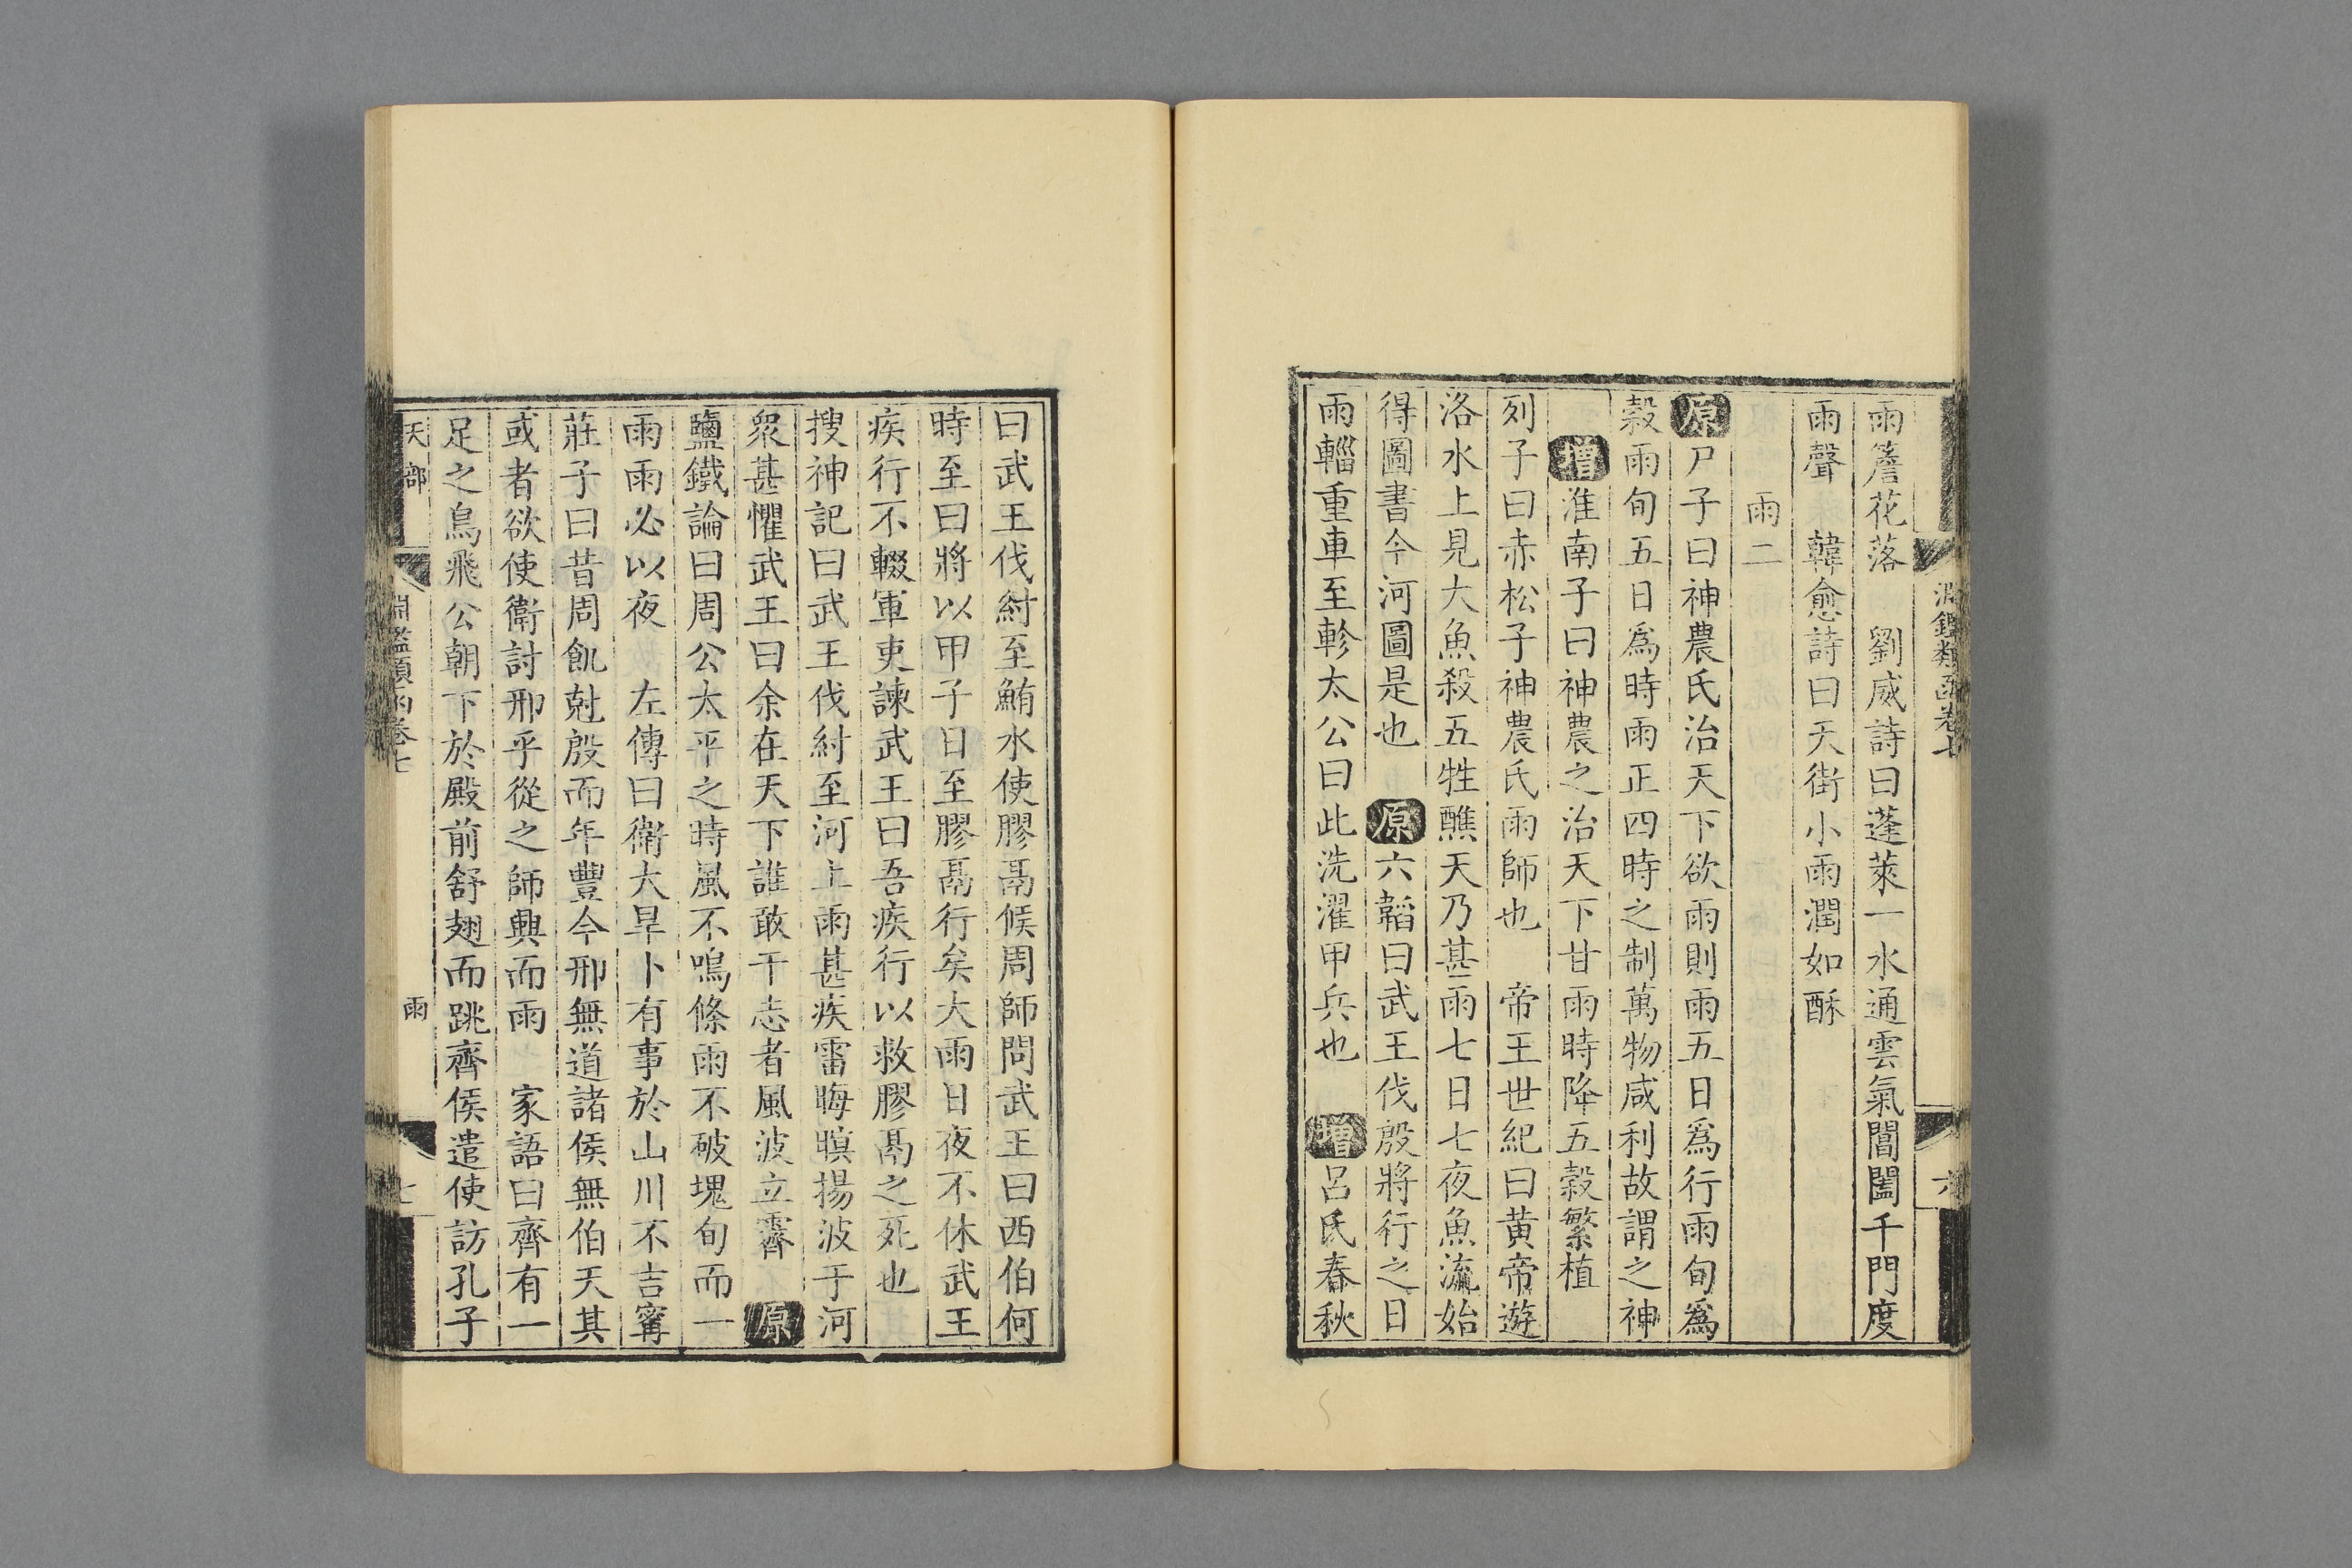 淵鑑類函卷七
六
雨簷花落 劉威詩曰蓬萊一水通雲氣閶闔千門度
雨聲 韓愈詩曰天街小雨潤如酥
雨二
原尸子曰神農氏治天下欲雨則雨五日爲行雨旬爲
穀雨旬五日爲時雨正四時之制萬物咸利故謂之神
增淮南子曰神農之治天下甘雨時降五穀繁植
列子曰赤松子神農氏雨師也 帝王世紀曰黃帝遊
洛水上見大魚殺五牲醮天乃甚雨七日七夜魚流始
得圖書今河圖是也 原六韜曰武王伐殷將行之日
雨輜重車至軫太公曰此洗濯甲兵也 增呂氏春秋
曰武王伐紂至鮪水使膠鬲候周師問武王曰西伯何
時至曰將以甲子日至膠鬲行矣大雨日夜不休武王
疾行不輟軍吏諫武王曰吾疾行以救膠鬲之死也
搜神記曰武王伐紂至河上雨甚疾雷晦暝揚波于河
衆甚懼武王曰余在天下誰敢干志者風波立霽 原
鹽鐵論曰周公太平之時風不鳴條雨不破塊旬而一
雨雨必以夜 左傳曰衛大旱卜有事於山川不吉甯
莊子曰昔周飢尅殷而年豐今邢無道諸侯無伯天其
或者欲使衛討邢乎從之師興而雨 家語曰齊有一
足之鳥飛公朝下於殿前舒翅而跳齊侯遣使訪孔子
天部
淵鑑類函卷七
雨
七